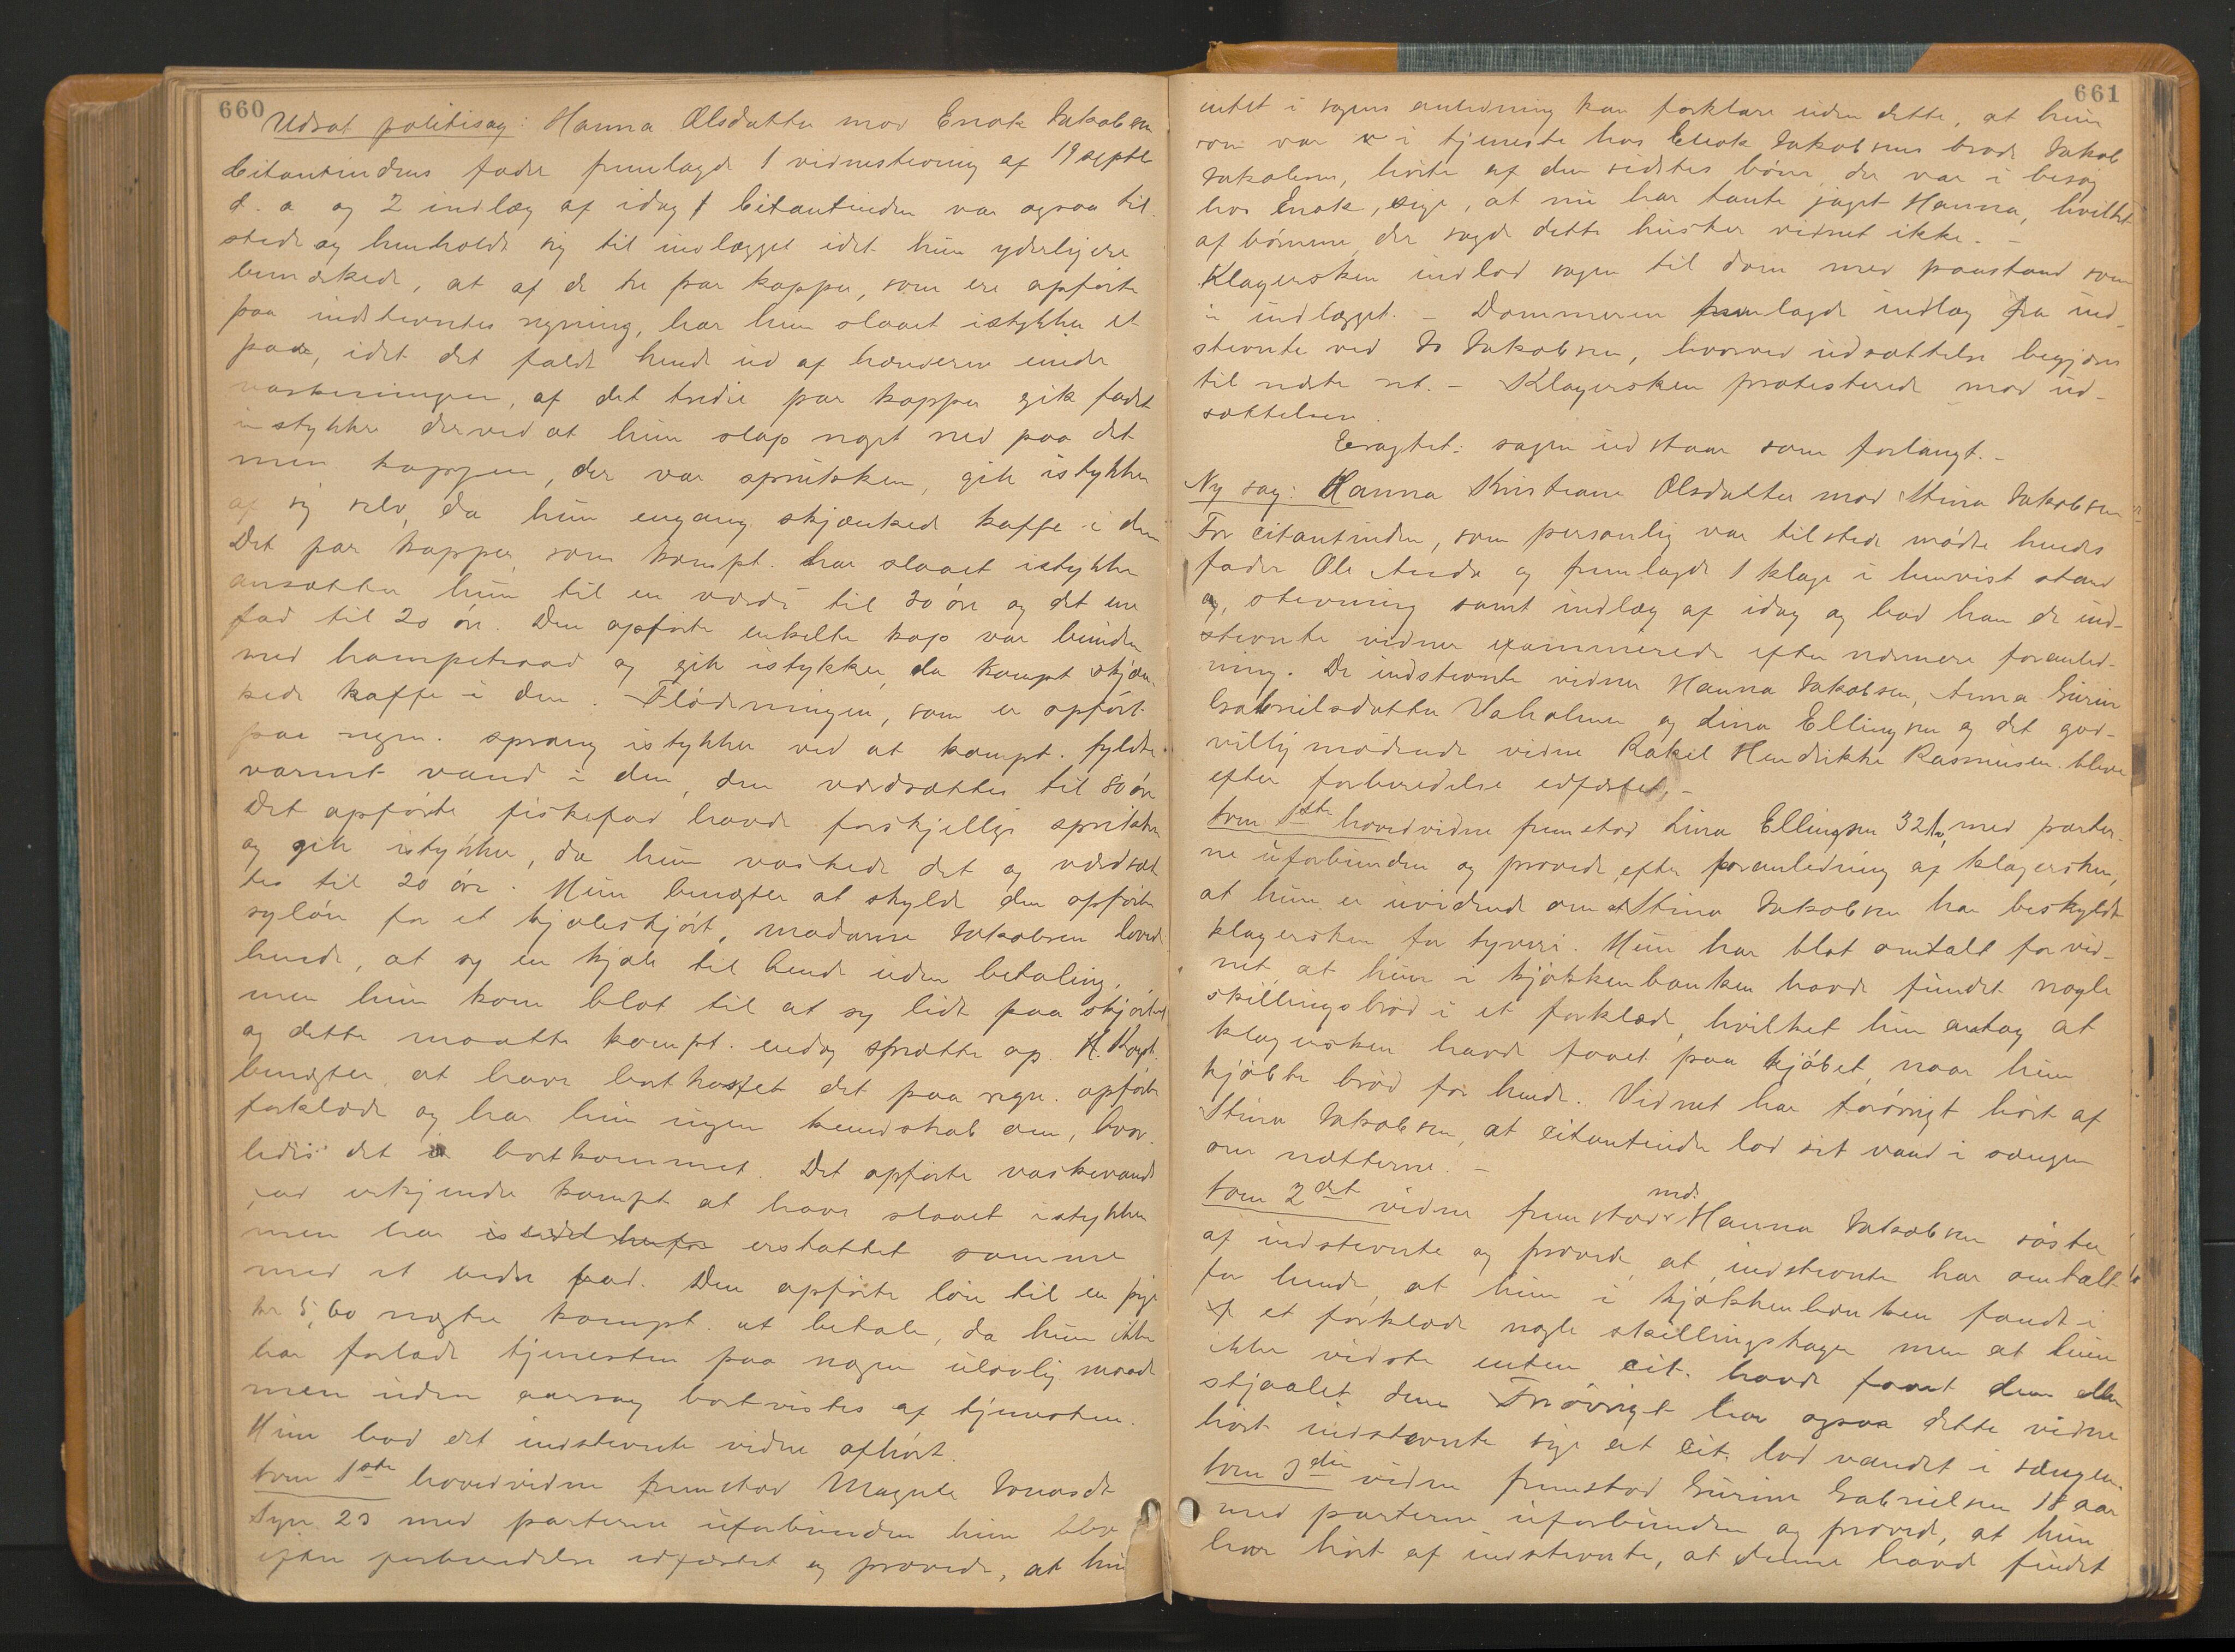 660
Udsat politisag: Hanna Olsdatter mod Enok Jakobsen
Citantindens fader fremlagde 1 vidnestevning af 19 septbr
d. a og 2 indlæg af idag. Citantinden var ogsaa til
stede og henholdt sig til indlægget idet hun yderligere
bemærkede, at af de tre par kopper, som ere opførte
paa indstevntes regning, har hun slaaet istykker et
par, idet det faldt hende ud af hænderne under
vaskeningen, af det tredie par kopper gik fadet
i stykker derved at hun slap noget ned paa det
men koppen, der var sprukken, gik istykker
af sig selv, da hun engang skjænkede kaffe i den
Det par kopper, som kompt. har slaaet istykker
ansætter hun til en værdi til 30 øre og det ene
fad til 20 øre. Den opførte enkelte kop var bunden
med hampetraad og gik istykker, da kompt skjæn-
kede kaffe i den. Flødemuggen, som er opført
paa regn. sprang istykker ved at kompt. fyldte
varmt vand i den, den værdsættes til 80 øre
Det opførte fiskefad havde forskjellige sprukker
og gik istykker, da hun vaskede det og værdsæt
tes til 20 øre. Hun benegter at skylde den opførte
syløn for et kjoleskjørt, madame Jakobsen lovede
hende, at sy en kjole til hende uden betaling,
men hun kom blot til at sy lidt paa skjørtet
og dette maatte kompt. endog sprætte op. Kompt.
benegter, at have bortkastet det paa regn. opførte
forklæde og har hun ingen kundskab om, hvor-
ledes det er bortkommet. Det opførte vaskevands
fad erkjender kompt at have slaaet istykker
men har istedet herfor erstattet samme
med et bedre fad. Den opførte løn til en pige
kr 5,60 negter kompt. at betale, da hun ikke
har forladt tjenesten paa nogen ulovlig maade
men uden aarsag bortvistes af tjenesten.
Hun bad det indstevnte vidne afhørt.
Som 1ste hovedvidne fremstod Magnile Jonasdt
Syre 23 med parterne uforbunden hun blev
efter forberedelse edfæstet og provede, at hun
661
intet i sagens anledning kan forklare uden dette, at hun
som var i tjeneste hos Enok Jakobsens broder Jakob
Jakobsen, hørte af den sidstes børn, der var i besøg
hos Enok, sige, at nu har tante jaget Hanna, hvilket
af børnene der sagde dette husker vidnet ikke. -
Klagersken indlod sagen til dom med paastand som
i indlægget. - Dommeren fremlagde indlæg fra ind-
stevnte ved Jakobsen, hvorved udsættelse begjæres
til næste ret. - Klagersken protesterede mod ud-
sættelsen.
Eragtet: sagen udstaar som forlangt. -
Ny sag: Hanna Kristiane Olsdatter mod Stina Jakobsen
For citantinden, som personlig var tilstede mødte hendes
fader Ole Anda og fremlagde 1 klage i henvist stand
og, stevning samt indlæg af idag og bad han de ind-
stevnte vidner examinerede efter nærmere foranled-
ning. De indstevnte vidner Hanna Jakobsen, Anna Gurine
Gabrielsdatter Vaholmen og Lina Ellingsen og det god-
villig mødende vidne Rakel Hendrikke Rasmusen bleve
efter forberedelse edfæstet, -
Som 1ste hovedvidne fremstod Lina Ellingsen 32 med parter-
ne uforbunden og provede, efter foranledning af klagersken,
at hun er uvidende om at Stina Jakobsen har beskyldt
klagersken for tyveri. Hun har blot omtalt for vid-
net at hun i kjøkkenbænken havde fundet nogle
skillingsbrød i et forklæde, hvilket hun antog at
klagersken havde faaet paa kjøbet, naar hun
kjøbte brød for hende. Vidnet har forøvrigt hørt af
Stina Jakobsen, at citantinden lod sit vand i sængen
om nætterne. -
Som 2det vidne fremstod md. Hanna Jakobsen søster
af indstevnte og provede, at indstevnte har omtalt
for hende, at hun i kjøkkenbænken fandt i
et forklæde nogle skillingskager men at hun
ikke vidste enten cit. havde faaet dem eller
stjaalet dem Forøvrigt har ogsaa dette vidne
hørt indstevnte sige at cit. lod vandet i sængen.
Som 3die vidne fremstod Gurine Gabrielsen 18 aar
med parterne uforbunden og provede, at hun
har hørt af indstevnte, at denne havde fundet